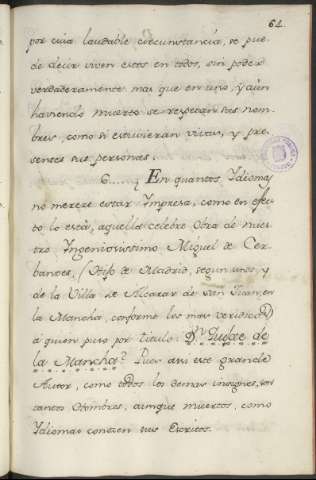 64
por cuia laudable circunstancia, se pue-
de decir viven estos en todos, sin poder
verdaderamente mas que en uno, y aun
haviendo muerto se respetan sus nom-
bres, como si estuvieran vivas, y pre-
sentes sus personas.
6....¿ En quantos Idiomas
no merece estar Impresa, como en efec-
to lo està, aquella celebre Obra de nues-
tro Ingeniosissimo Miguel de Cer-
bantes, (Hijo de Madrid, segun unos, y
de la Villa de Alcazar de San Juan, en
la Mancha, conforme los mas veridicos)
a quien puso por titulo: Dn. Quixote de
la Mancha? Pues asi este grande
Autor, como todos los demas insignes, son
tantos Hombres, aunque muertos, como
Idiomas conocen sus Escritos.